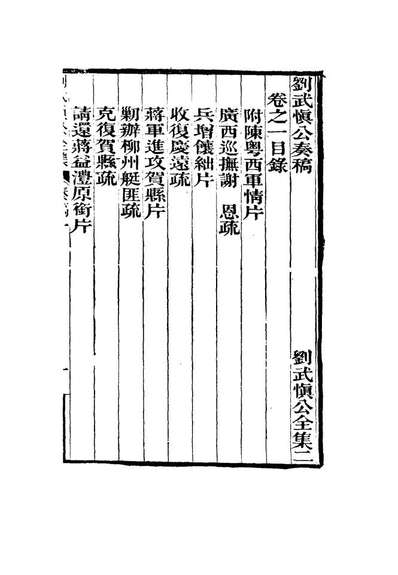 劉武愼公奏稿
劉武愼公全集二
卷之一目錄
附陳粵西軍情片
廣西巡撫謝 恩疏
兵增饟絀片
收復慶遠疏
蔣軍進攻賀縣片
勦辦柳州艇匪疏
克復賀縣疏
請還蔣益灃原銜片